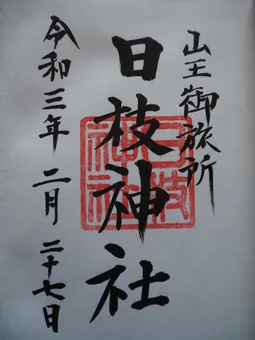 山王御旅所
日枝神社
令和三年 二月 二十七日